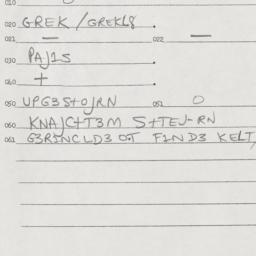 010
020 GREK / GREKL8 .
021 — 022 —
030 PAJ1S .
040 + .
050 UPG3S+OJRN 051 O
060 KNAJC++T3M S+TEJ-RN
061 G3RINCLD3 OT F1ND3 KELT,